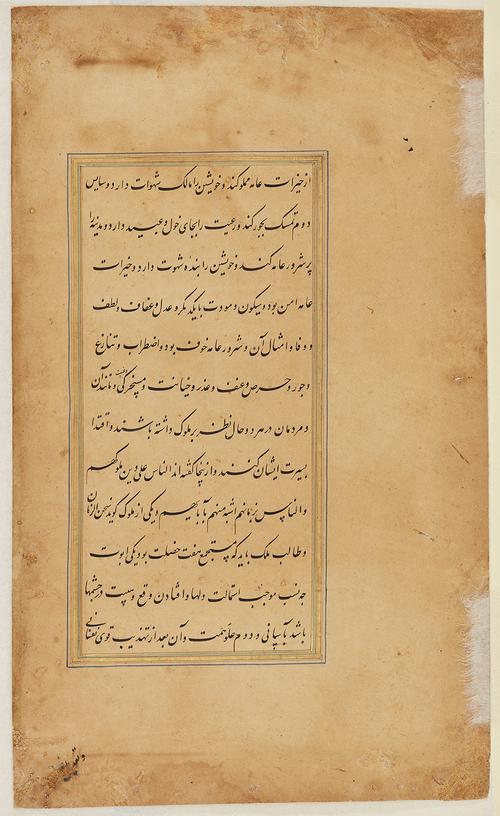 از خیرات عامه مملو کند و خویشتن را مالک شهوات دارد و سایس
دوم تمسک بجور کند و رعیت را بجای خول و عبید دارد و مدینه را
پر شرور عامه کند و خویشتن را بنده شهوت دارد و خیرات
عامه امن بود و سکون و مودت با یکدیگر و عدل و عفاف و لطف
و وفا و امثال آن و شرور عامه خوف بود و اضطراب و تنازع
و جور و حرص و عنف و غدر و خیانت و مسخرگی و غیبت و مانند آن
و مردمان در هر دو حال نظر بر ملوک داشته باشند و اقتدا
بسیرت ایشان کنند و از ینجا گفته‌اند الناس علی دین ملوکهم
و الناس بزمانهم اشبه منهم بآبایهم و یکی از ملوک گوید نحن الزمان
و طالب ملک باید که مستجمع هفت خصلت بود یکی ابوت
چه نسب موجب استمالت دلها و افتادن وقع و هیبت در چشمها
باشد بآسانی و دوم علو همت و آن بعد از تهذیب قوی نفسانی